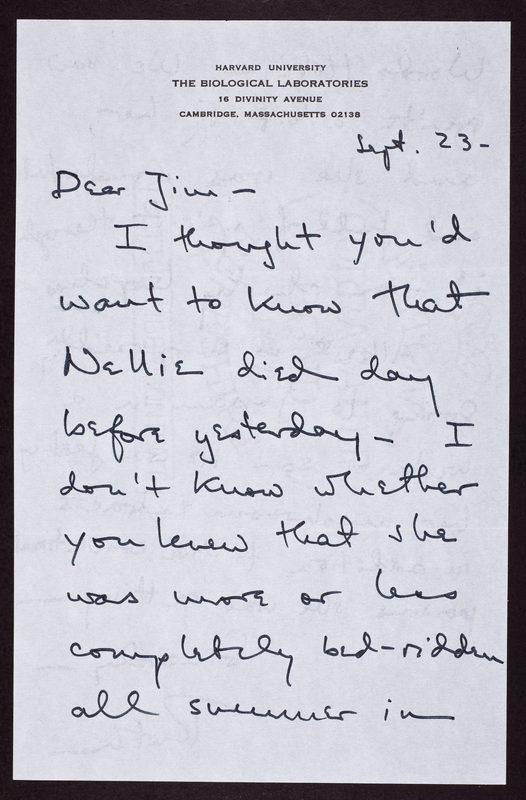 HARVARD UNIVERSITY
THE BIOLOGICAL LABORATORIES
16 DIVINITY AVENUE
CAMBRIDGE, MASSACHUSETTS 02138
Sept. 23-
Dear Jim -
I thought you'd
want to know that
Nellie died day
before yesterday - I
don't know whether
you knew that she
was more or less
completely bed-ridden
all summer in